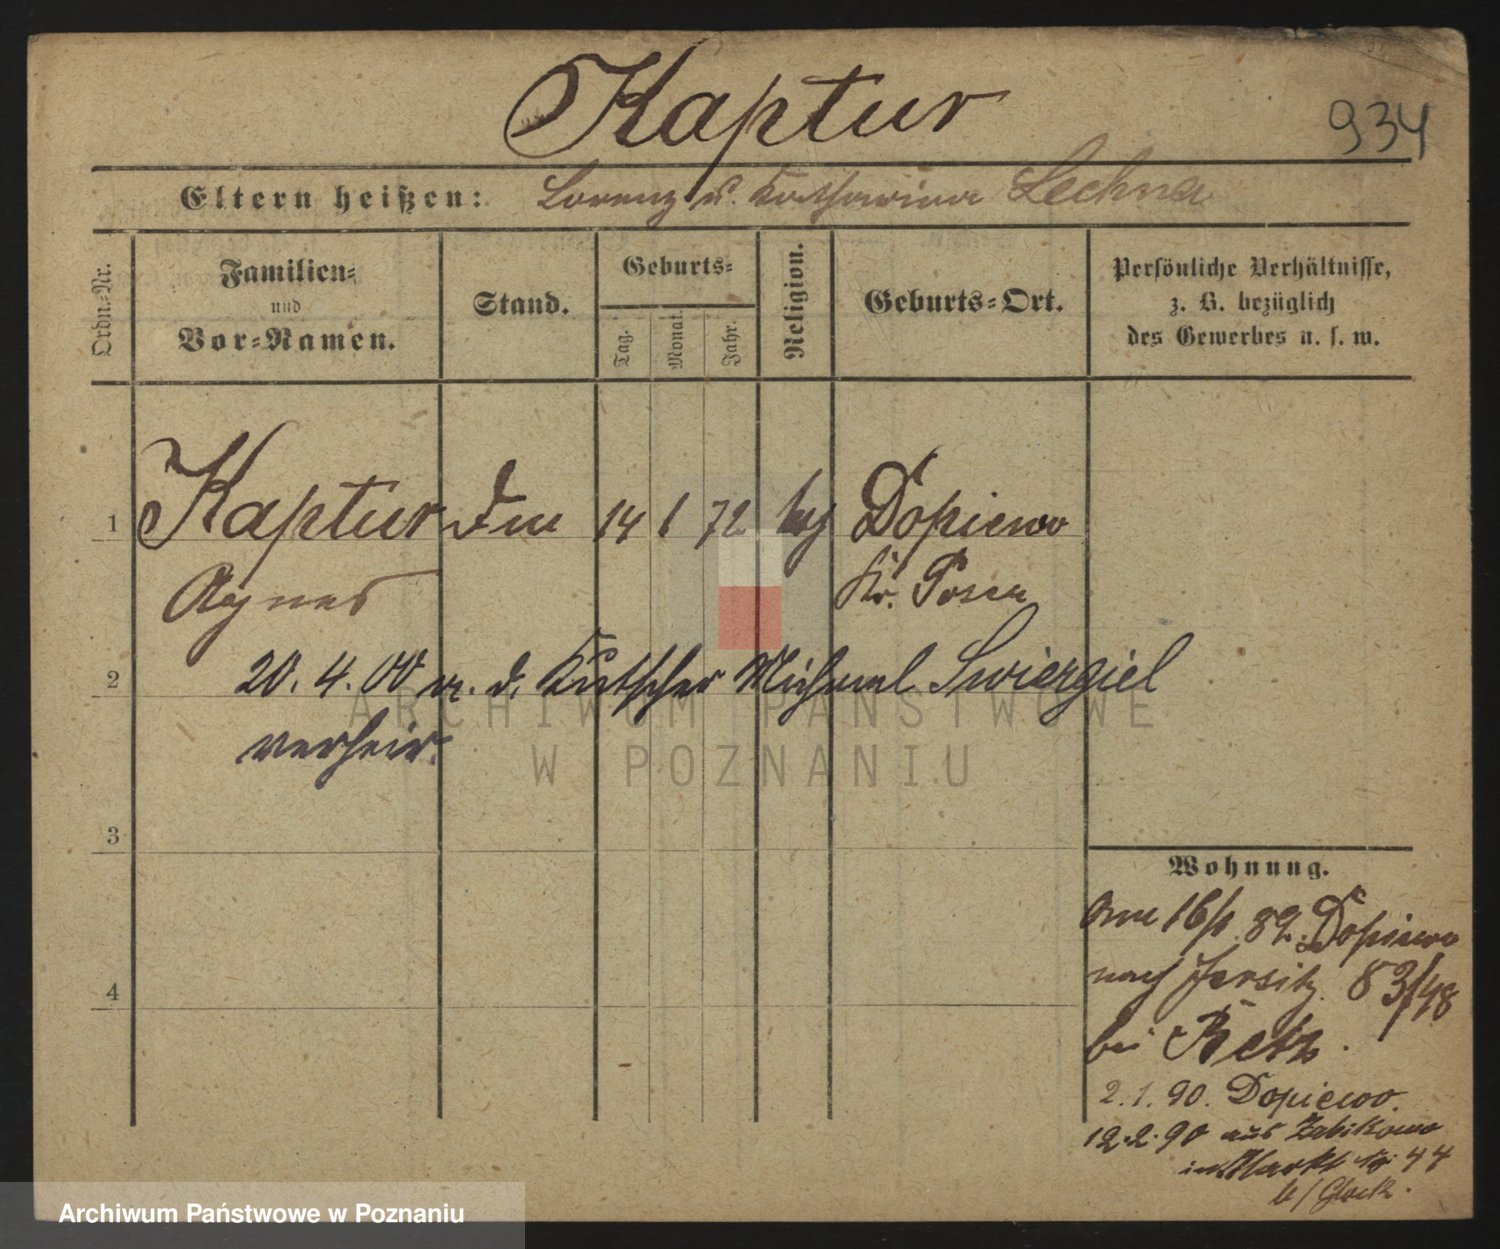 Kaptur
934
Eltern heißen: Lorenz u. Katharina Lechna
Ordn.-Nr.
Familien-
und
Vor-Namen.
Stand.
Geburts-
Tag.
Monat.
Jahr.
Religion.
Geburts-Ort.
Persönliche Verhältnisse,
z. B. bezüglich
des Gewerbes u. s. w.
1 Kaptur 14 1 72 Dopiewo
Agnes Kr. Posen
2 20.4.00 m. d. Kutscher Michael Swiergiel
verheir.
ARCHIWUM PAŃSTWOWE
W POZNANIU
3
4
Wohnung.
16/1. 89. Dopiewo
nach Jersitz. 83/48
bei Retz.
2.1.90. Dopiewo.
12.2.90 aus Zabikowo
Markt 44
b/ Glock.
Archiwum Państwowe w Poznaniu